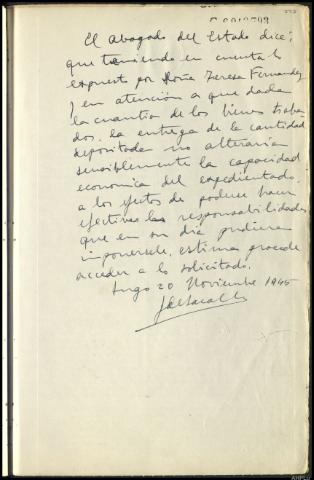 El Abogado del Estado dice:
que teniendo en cuenta lo
expuesto por Doña Teresa Fernandez
y en atención a que dada
la cuantia de los bienes traba-
dos, la entrega de la cantidad
depositada no alteraria
sensiblemente la capacidad
economica del expedientado.
a los efectos de poderse hacer
efectivas las responsabilidades
que en su dia pudiera
imponersele, estima procede
acceder a lo solicitado.
Lugo 20 Noviembre 1945
AHPLU